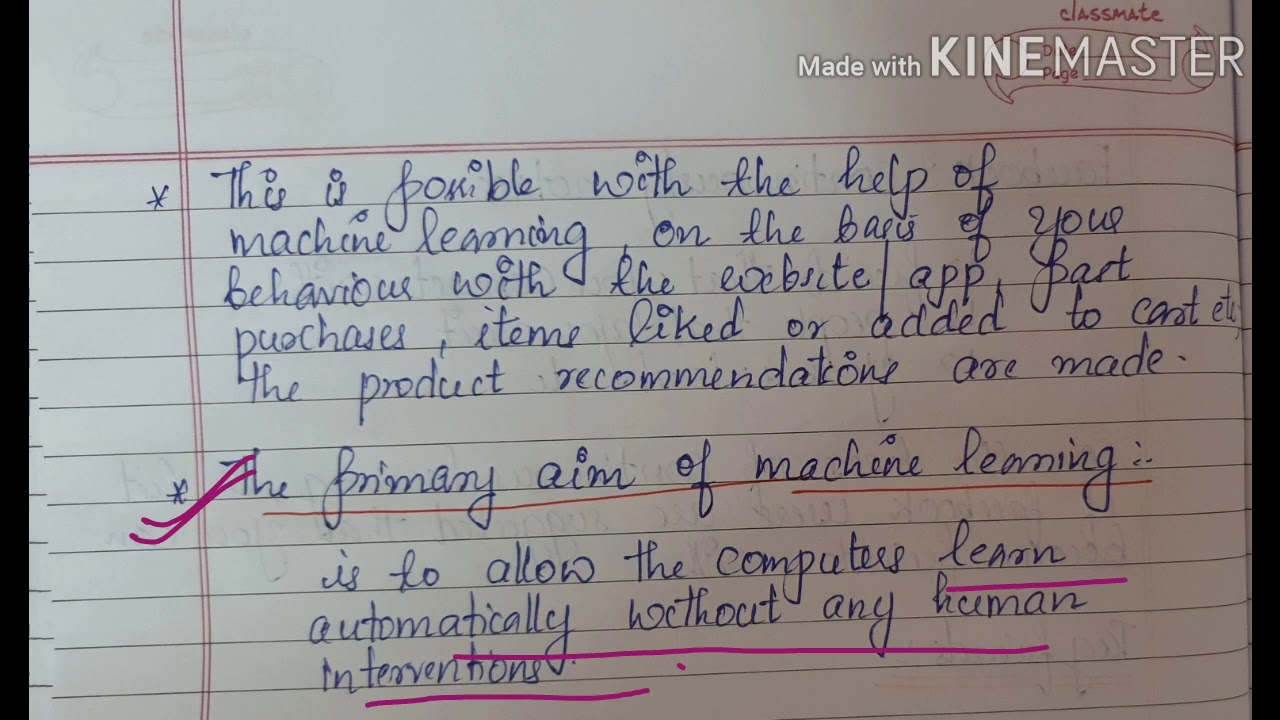 classmate
Date
Page
Made with KINEMASTER
* This is possible with the help of
machine learning, on the basis of your
behaviour with the website/app, Past
purchases, items liked or added to cart etc,
the product recommendations are made.
* The primary aim of machine learning :-
is to allow the computers learn
automatically without any human
interventions.